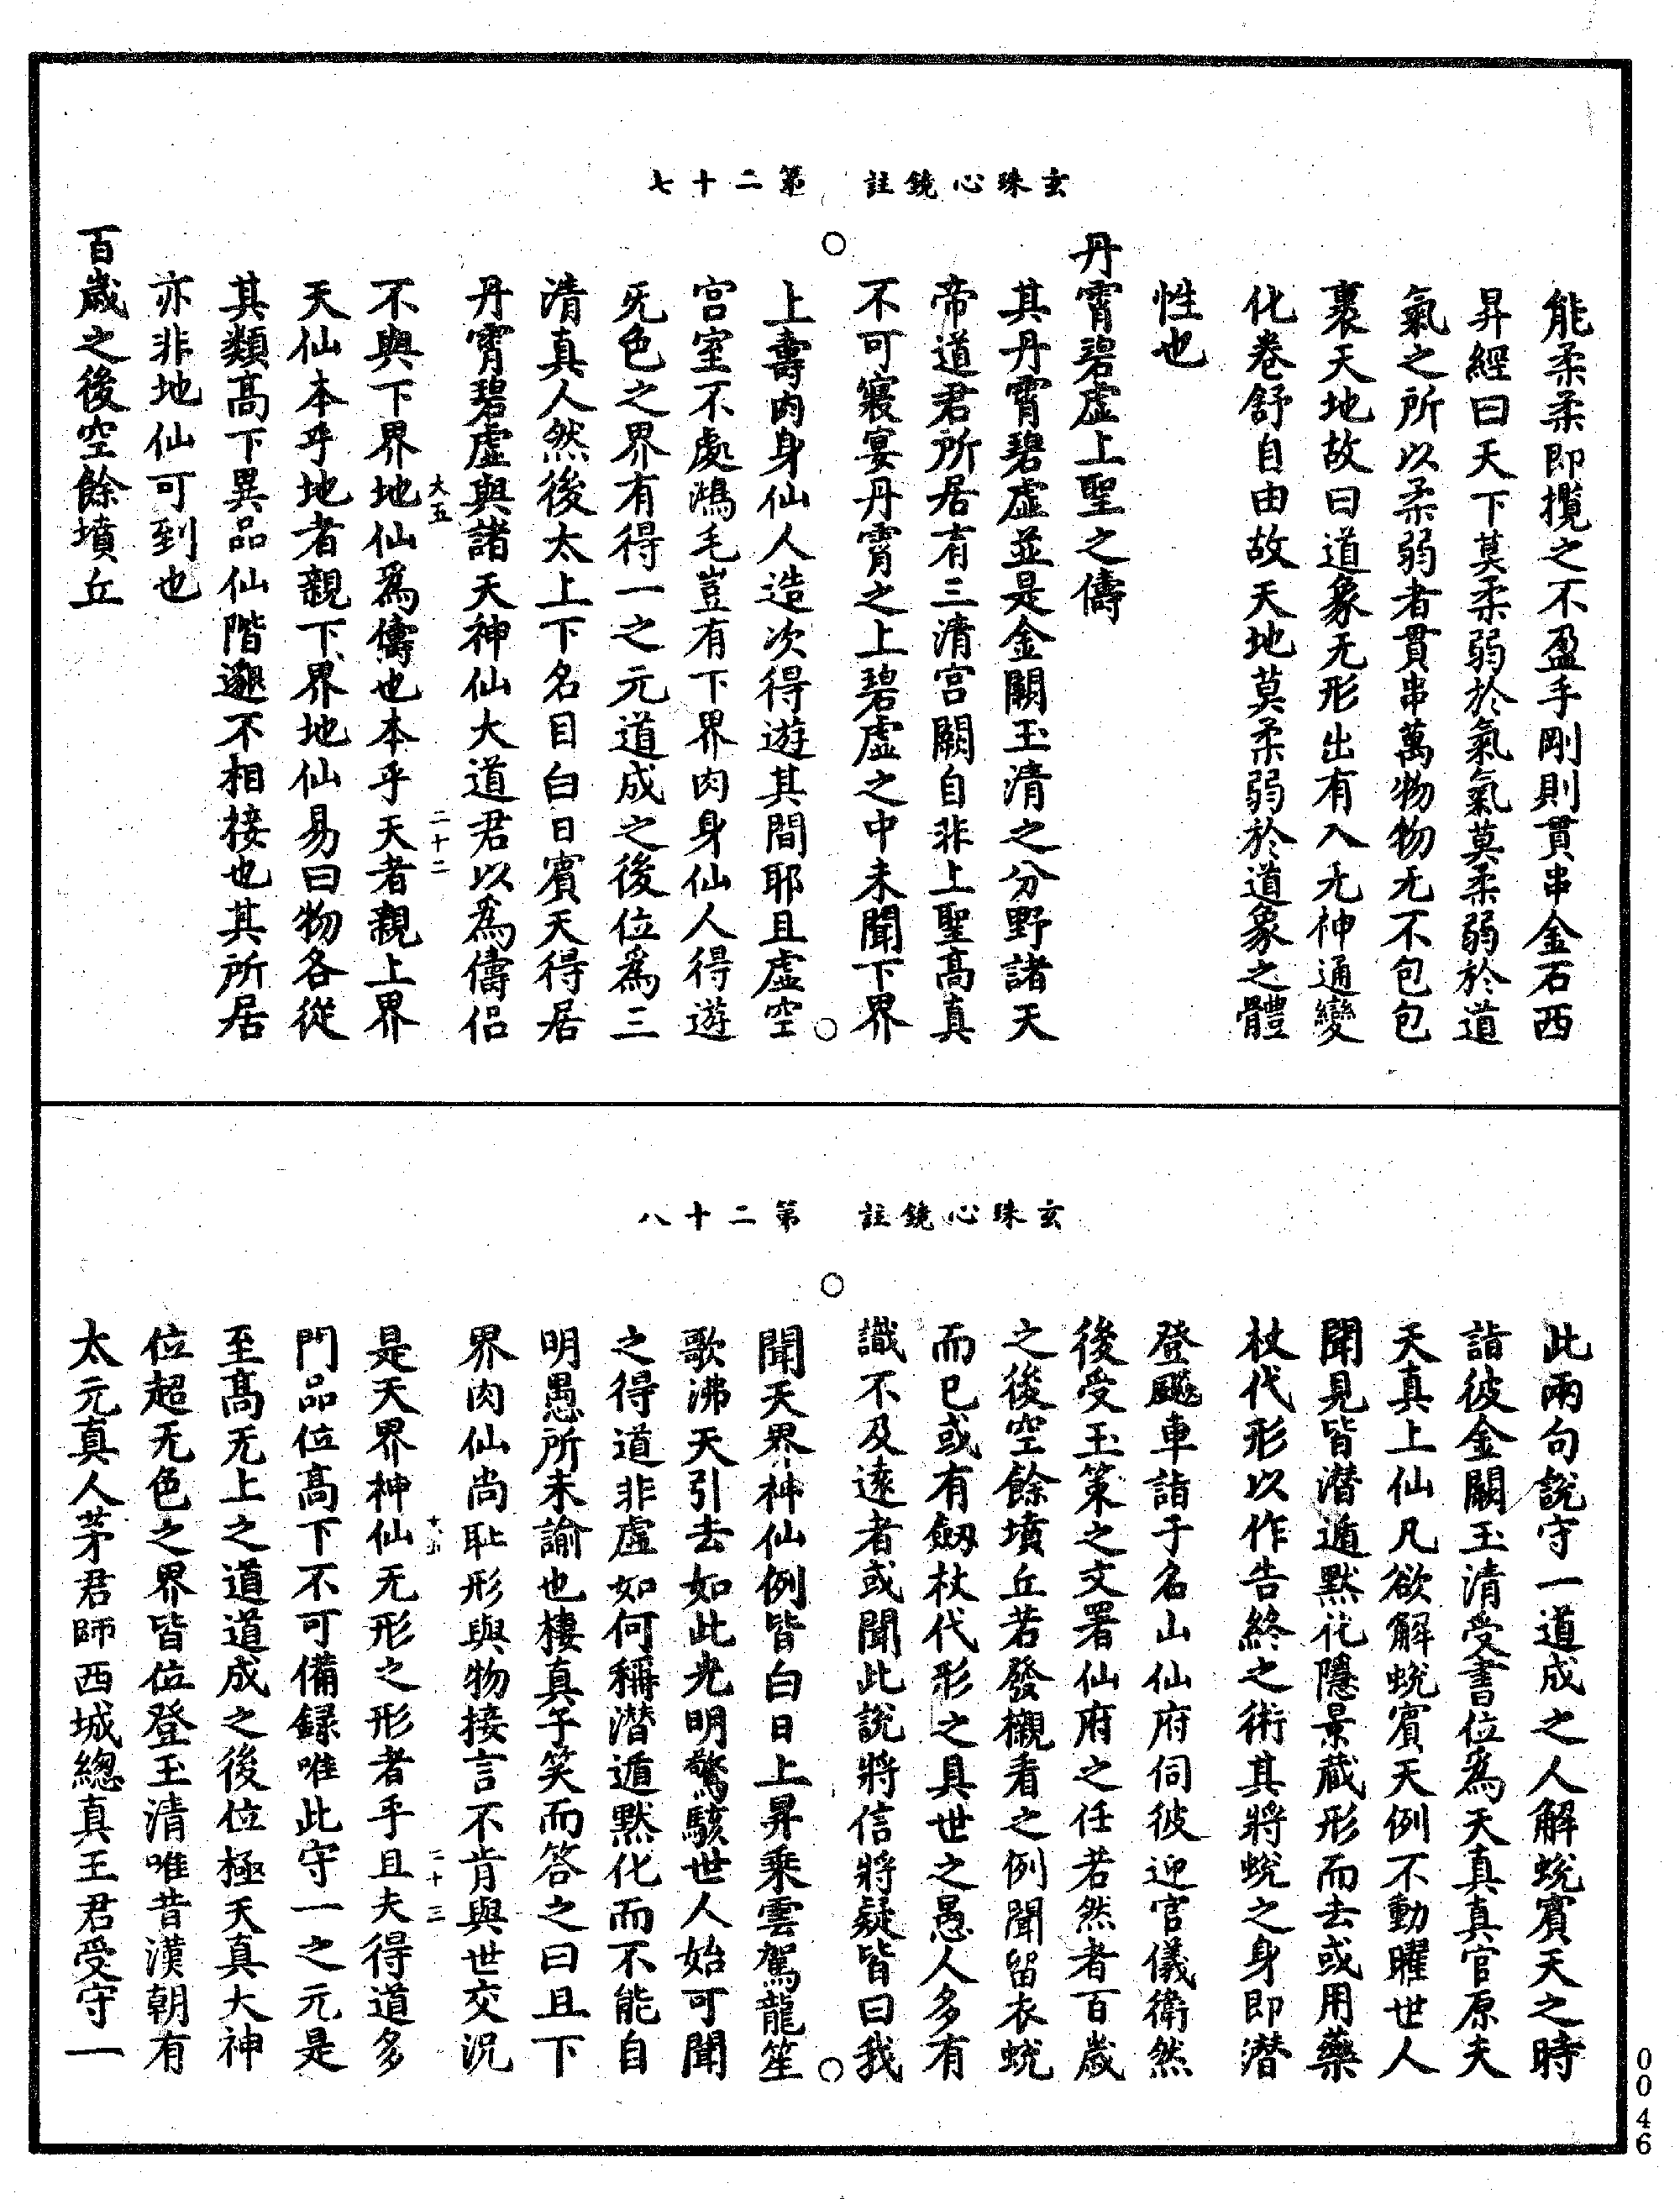 玄珠心鏡註　第二十七
能柔柔即攬之不盈手剛則貫串金石西
昇經曰天下莫柔弱於氣氣莫柔弱於道
氣之所以柔弱者貫串萬物物无不包包
裹天地故曰道象无形出有入无神通變
化卷舒自由故天地莫柔弱於道象之體
性也
丹霄碧虛上聖之儔
其丹霄碧虛並是金闕玉清之分野諸天
帝道君所居有三清宮闕自非上聖高真
不可寢宴丹霄之上碧虛之中未聞下界
上壽肉身仙人造次得遊其間耶且虛空
宮室不處鴻毛豈有下界肉身仙人得遊
旡色之界有得一之元道成之後位爲三
清真人然後太上下名目白日賓天得居
丹霄碧虛與諸天神仙大道君以為儔侣
大五
二十二
不與下界地仙爲儔也本乎天者親上界
天仙本乎地者親下界地仙易曰物各從
其類高下異品仙階邈不相接也其所居
亦非地仙可到也
百歲之後空餘墳丘
玄珠心鏡註　第二十八
此兩句說守一道成之人解蛻賓天之時
詣彼金闕玉清受書位為天真真官原夫
天真上仙凡欲解蛻賓天例不動曜世人
聞見皆潜遁默化隱景蔵形而去或用藥
杖代形以作告終之術其將蛻之身即潜
登飈車詣于名山仙府伺彼迎官儀衛然
後受玉策之文署仙府之任若然者百歲
之後空餘墳丘若發櫬看之例聞留衣蛻
而已或有劒杖代形之具世之愚人多有
識不及遠者或聞此說將信將疑皆曰我
聞天界神仙例皆白日上昇乗雲駕龍笙
歌沸天引去如此光明驚駭世人始可聞
之得道非虛如何稱潜遁默化而不能自
明愚所未諭也棲真子笑而答之曰且下
界肉仙尚耻形與物接言不肯與世交況
二十三
是天界神仙无形之形者乎且夫得道多
門品位高下不可備録唯此守一之元是
至高无上之道道成之後位極天真大神
位超无色之界皆位登玉清唯昔漢朝有
太元真人茅君師西城總真王君受守一
0046